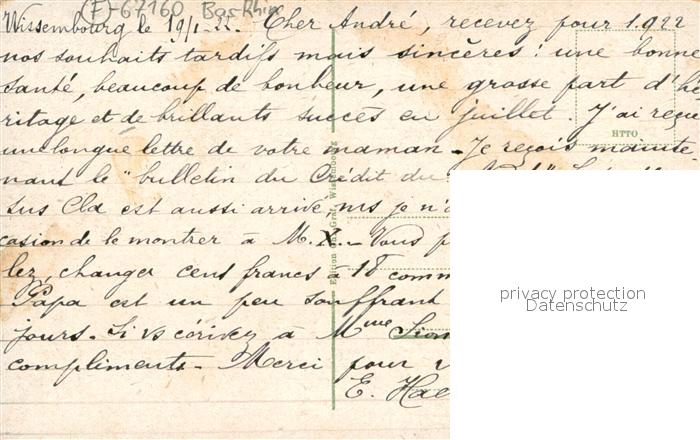 (F)-67160 Bas Rhin
Wissembourg le 19/1-22. Cher André, recevez pour 1922
nos souhaits tardifs mais sincères: une bonne
santé, beaucoup de bonheur, une grosse part d'hé
ritage et de brillants succès en juillet. J'ai reçu
HTTO
une longue lettre de votre maman - Je reçois mainte
nant le "bulletin du Crédit du
sus Cla est aussi arrivé, ms je n'
casion de le montrer à M. X. - Vous
lez, changer cent francs à 18 comm
Papa est un peu souffrant
jours. Si vs écrivez à Mme Sion
compliments - Merci pour
E. Hae
Edition Chr. Graf, Wissembourg
privacy protection
Datenschutz